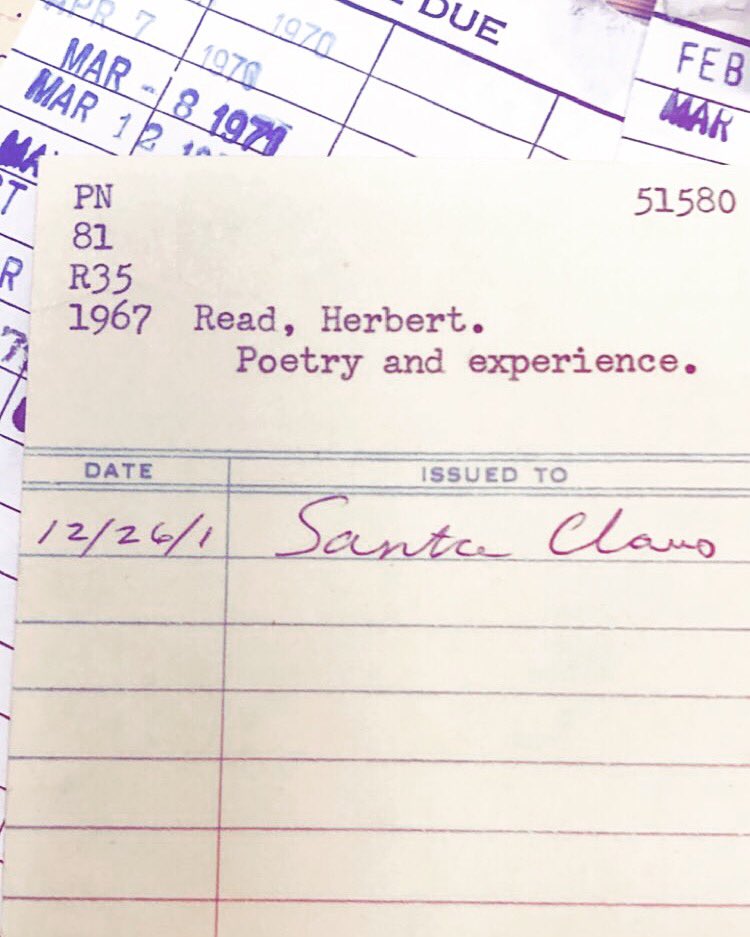 DUE
APR 7 1970
1970
MAR - 8 1971
MAR 12
FEB
MAR
PN 51580
81
R35
1967 Read, Herbert.
Poetry and experience.
DATE ISSUED TO
12/26/1 Santa Claus